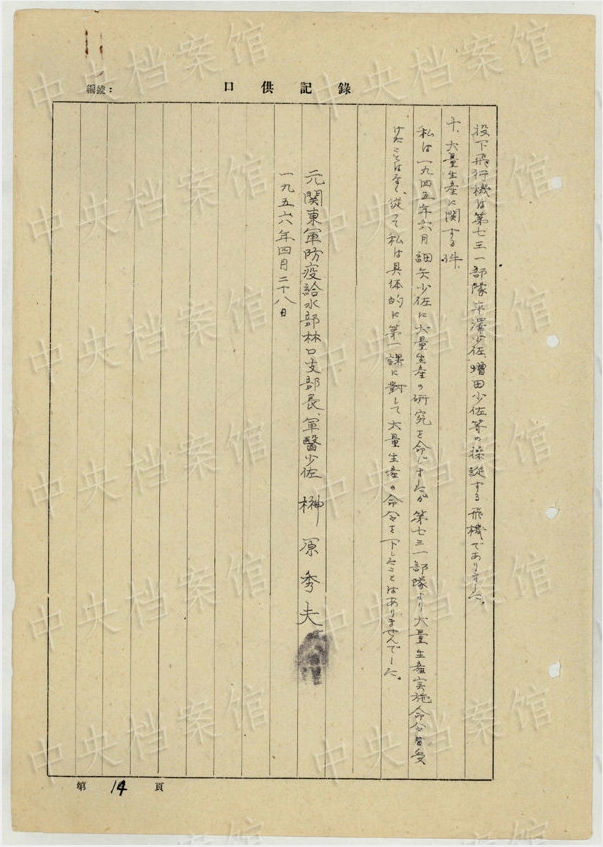 編號：
口供記錄
投下飛行機は第七三一部隊平澤少佐、増田少佐等の操縦する飛機でありました。
十、大量生産に関する件、
私は一九四五年六月 細矢少佐に大量生産の研究を命じましたが第七三一部隊より大量生産実施命令を受
けたことはなく、従て私は具体的に第一課に對して大量生産の命令を下したことはありませんでした。
元関東軍防疫給水部林口支部長、軍醫少佐 榊原秀夫
一九五六年四月二十八日
第 14 頁
中央档案馆